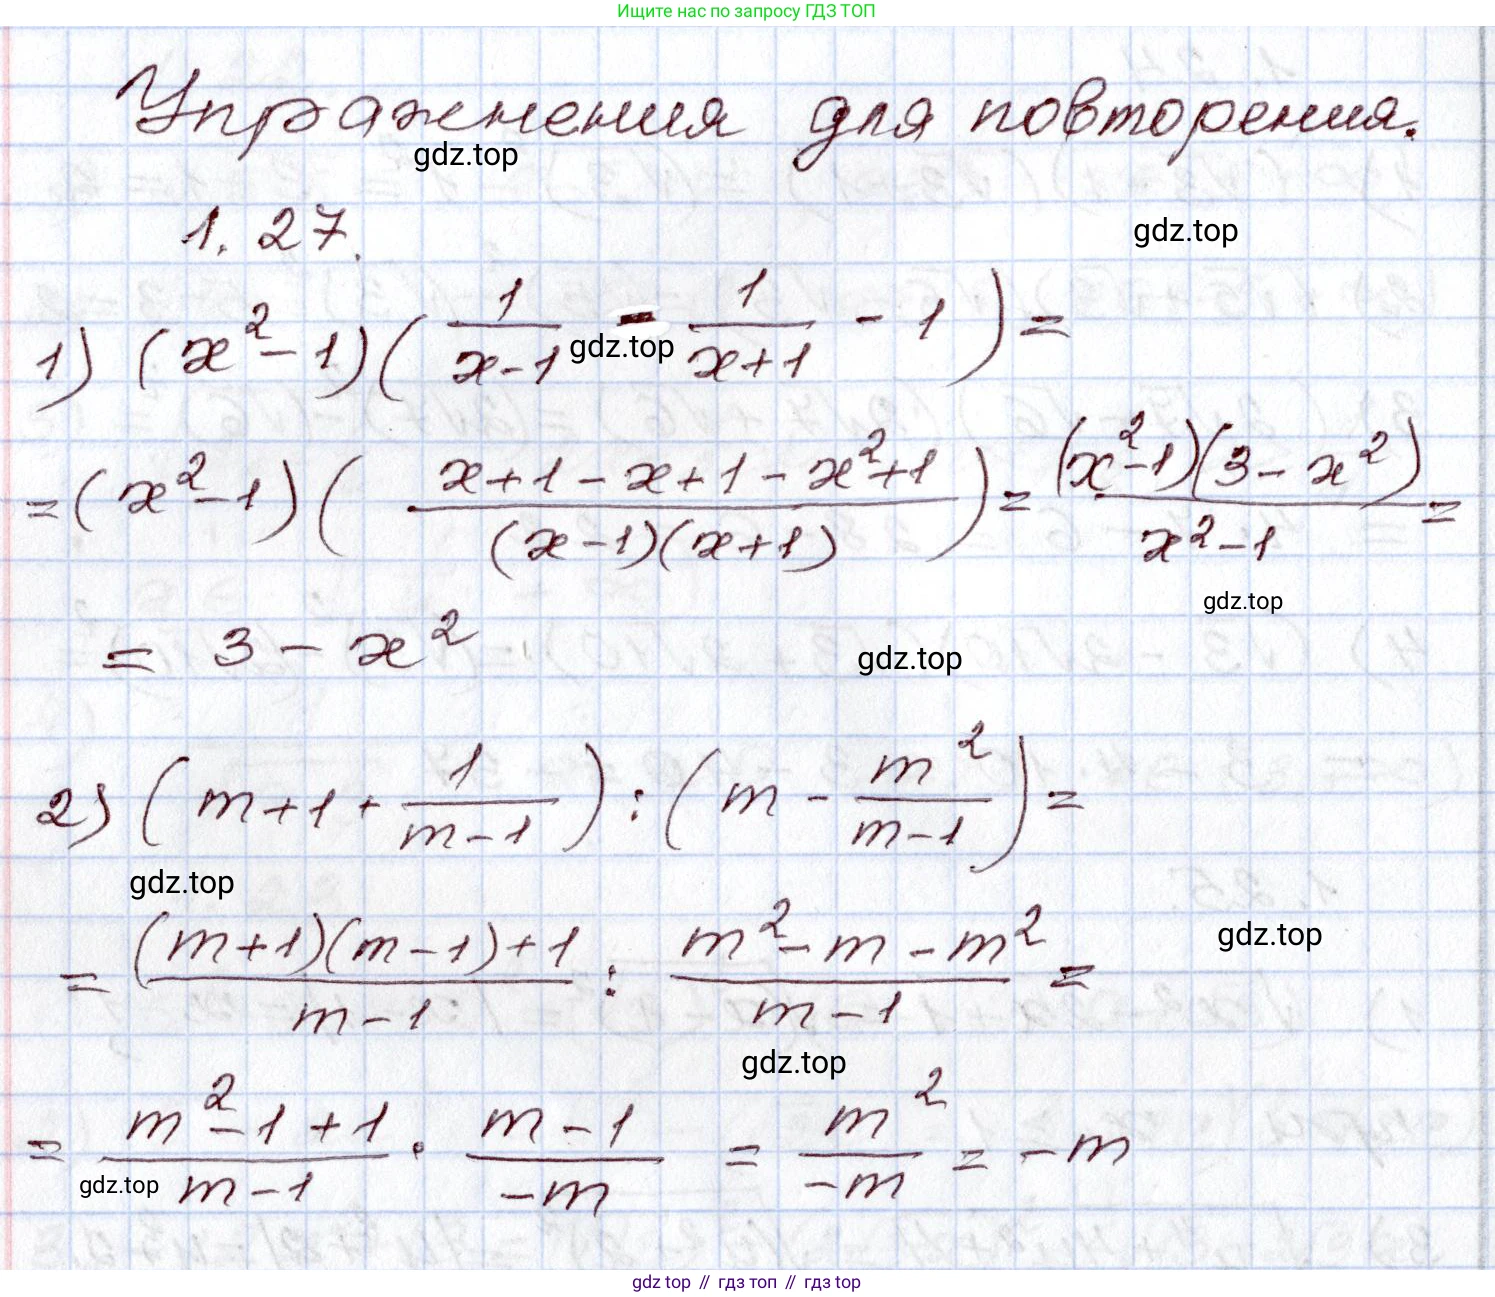 Ищите нас по запросу ГДЗ ТОП
Упражнения для повторения.
gdz.top
1.27.
gdz.top
1) (x² - 1)(1/(x-1) - 1/(x+1) - 1) =
gdz.top
= (x² - 1)((x+1-x+1-x²+1)/((x-1)(x+1))) = (x²-1)(3-x²)/(x²-1) =
gdz.top
= 3 - x²
gdz.top
2) (m+1+1/(m-1)) : (m - m²/(m-1)) =
gdz.top
= ((m+1)(m-1)+1)/(m-1) : (m²-m-m²)/(m-1) =
gdz.top
gdz.top
= (m²-1+1)/(m-1) · (m-1)/(-m) = m²/(-m) = -m
gdz.top
gdz top // гдз топ // гдз top